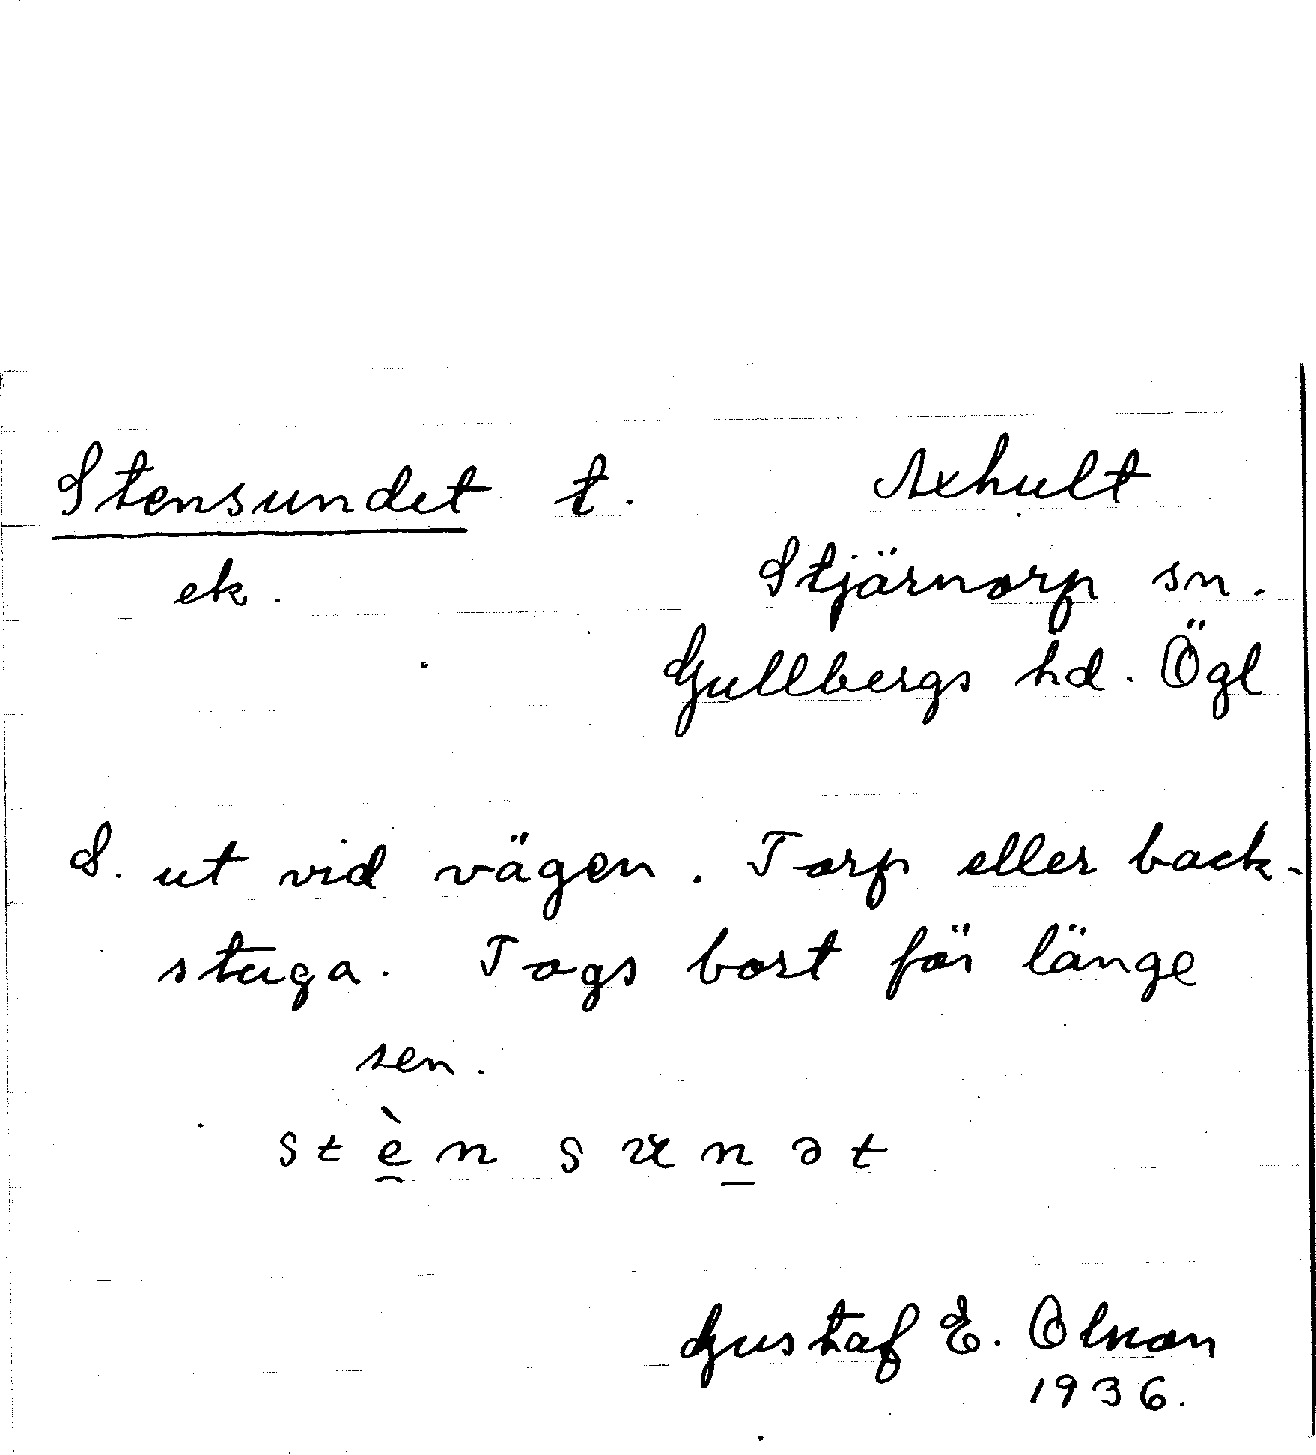 Stensundet t. Axhult
ek. Stjärnorp sn.
Gullbergs hd. Ögl
S. ut vid vägen. Torp eller back-
stuga. Togs bort för länge
sen.
stè̠nsun̠ət
Gustaf E. Olson
1936.